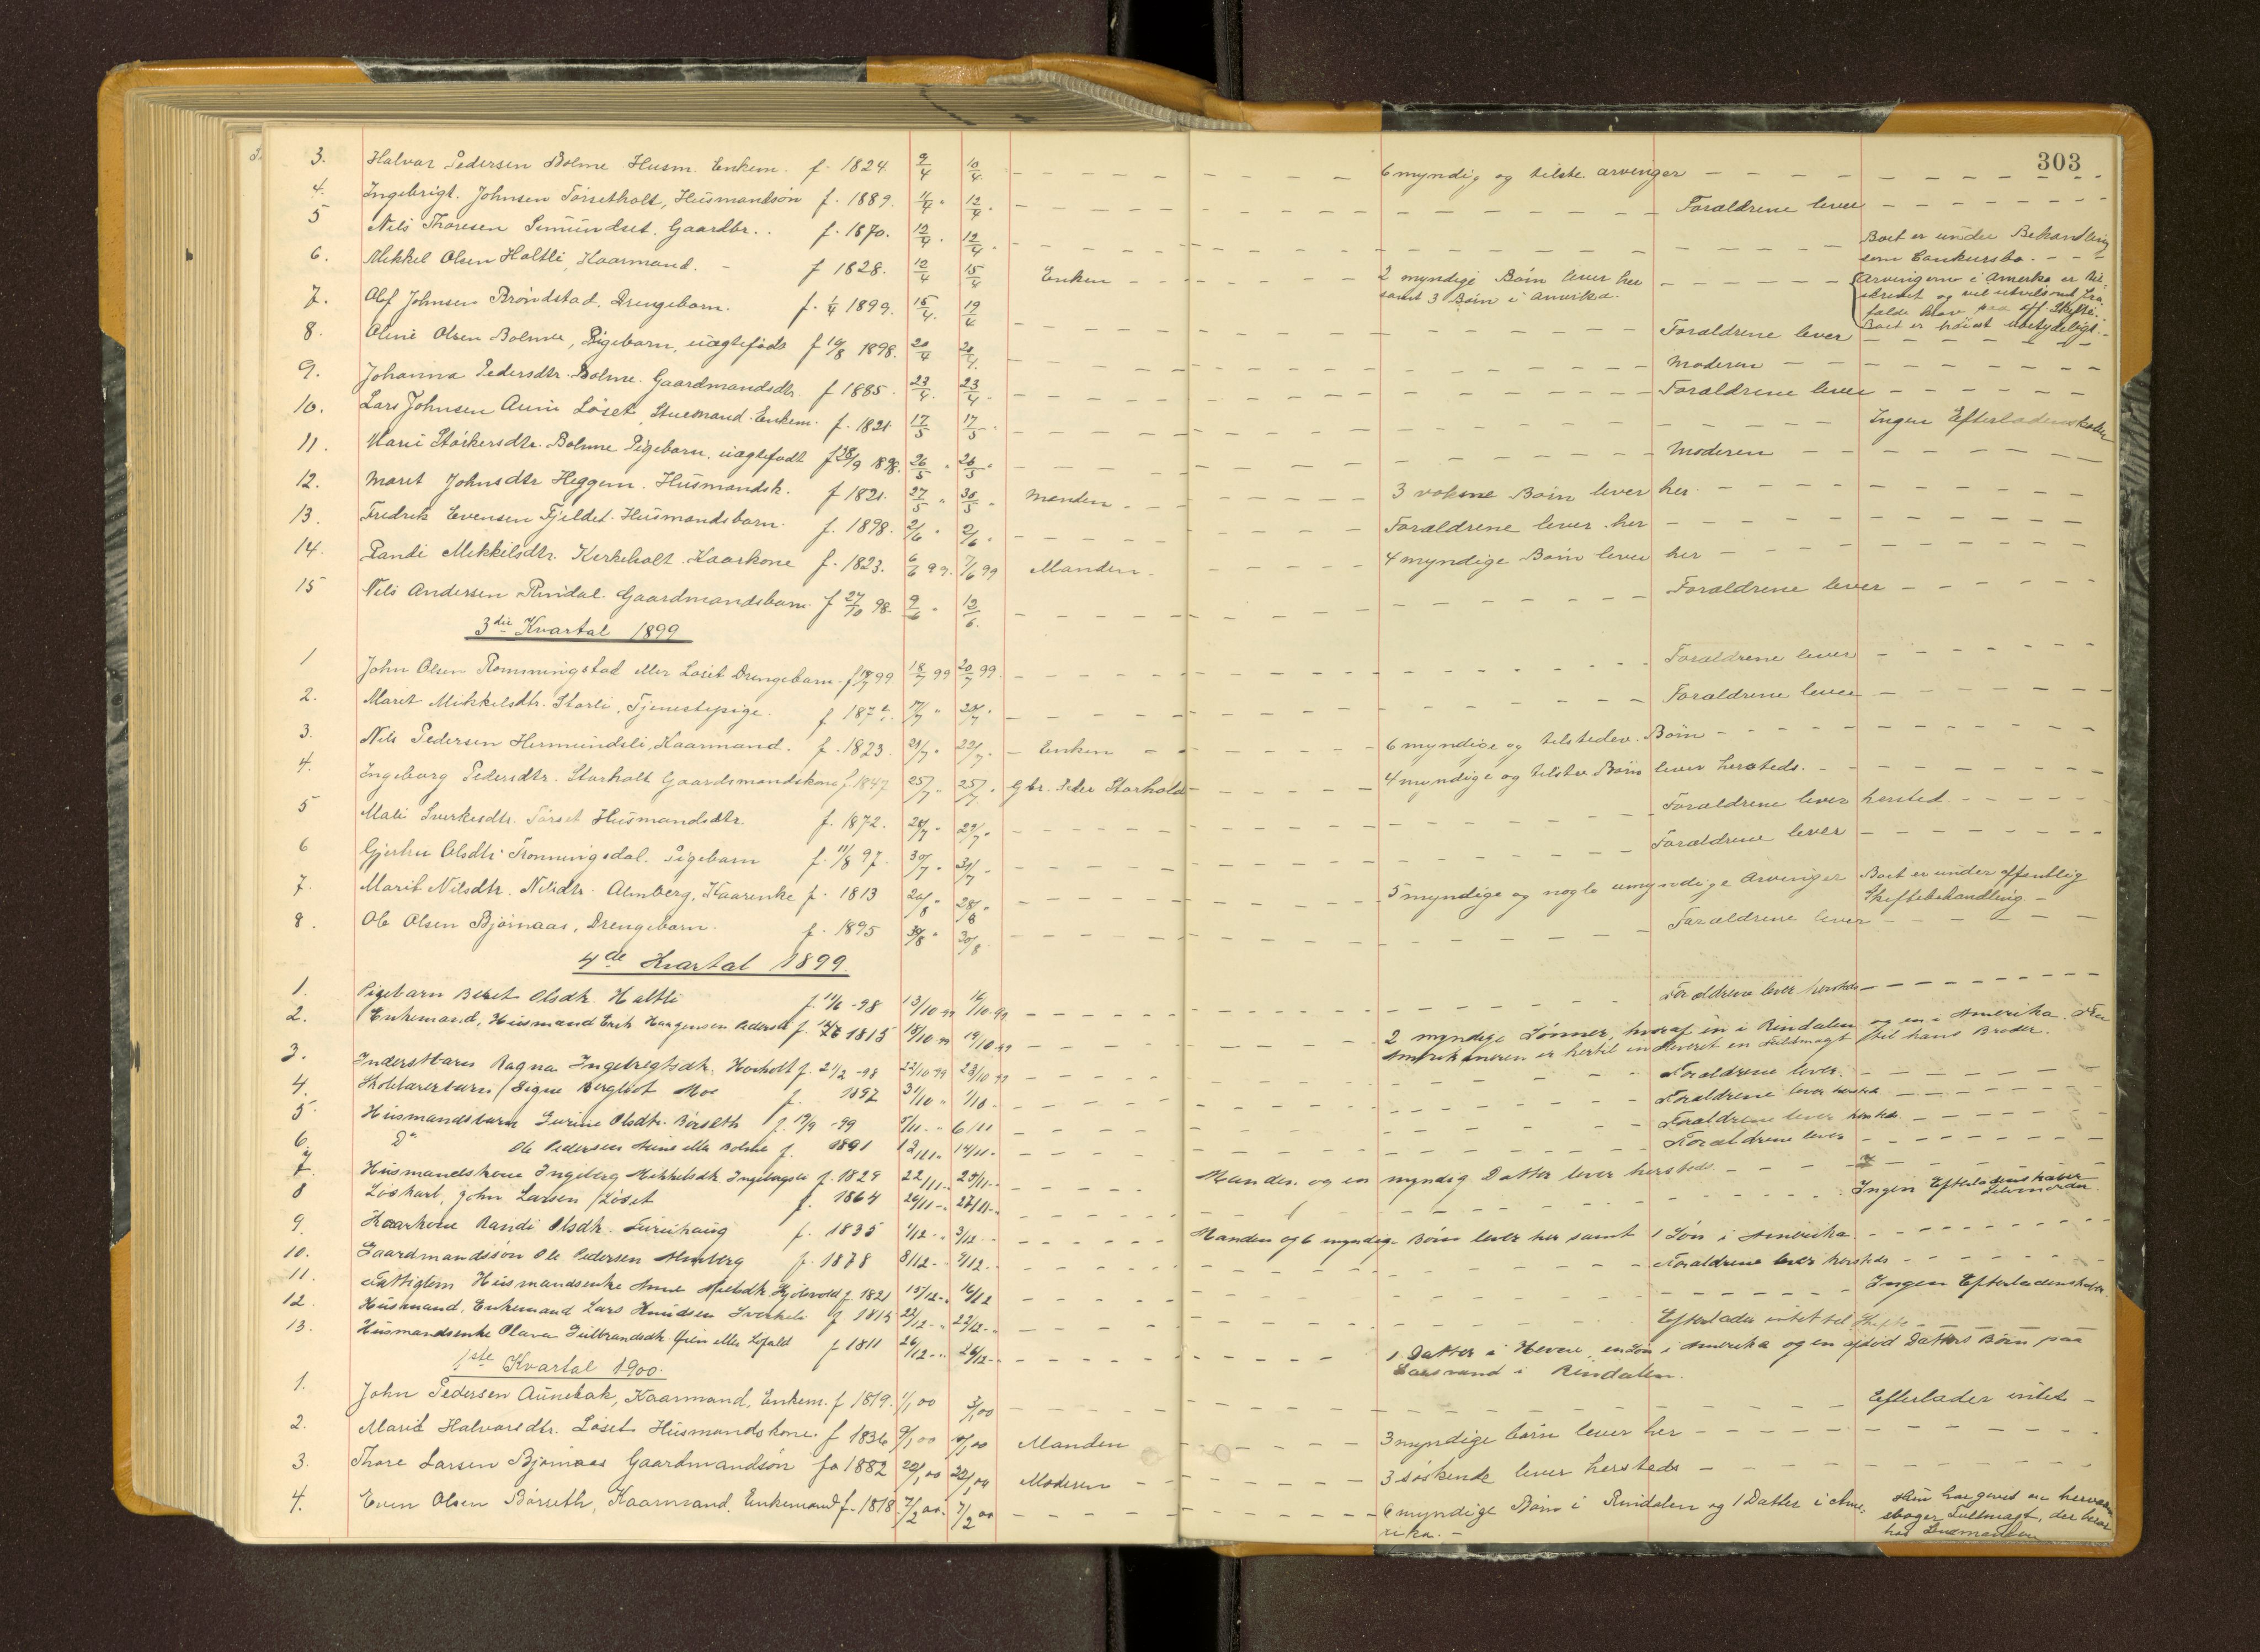 303
3. Halvar Pedersen Bolme Husm. Enkem. f. 1824. 9/4 10/4. 6 myndig og tilste. arvinger
4. Ingebrigt. Johnsen Törsetholt, Husmandsön f. 1889. 11/4 " 12/4. Forældrene lever
5 Nils Thoresen Simundset. Gaardbr.. f. 1870. 12/4. 12/4. Boet er under Behandling
som Conkursbo.
6. Mikkel Olsen Holtli, Kaarmand. f 1828. 12/4 15/4 Enken 2 myndige Börn lever her
samt 3 Börn i Amerika. Arvingerne i Amerika er
og vil fra
falde krav paa off. Skifte.
Boet er höist ubetydeligt.
7. Olof Johnsen Bröndstad. Drengebarn. f. 1/4 1899. 15/4. 19/4 Forældrene lever
8. Oline Olsen Bolme, Pigebarn, uægtefödt f 19/8 1898. 20/4 21/4. Moderen
9. Johanna Pedersdtr. Bolme. Gaardmandsdtr. f 1885. 23/4. 23/4. Forældrene lever
10. Lars Johnsen Aune Löset, Enkem. f. 1821. 17/5 17/5. Ingen Efterladenskaber
11. Marie Störkersdtr. Bolme Pigebarn, uægtefödt f 28/9 1898. 26/5 " 26/5 " Moderen
12. Marit Johnsdtr Heggem. Husmandsk. f 1821. 27/5 " 30/5 " Manden 3 voksne Börn lever her.
13. Fredrik Evensen Fjeldet. Husmandsbarn. f. 1898. 2/6 " 2/6. Forældrene lever her
14. Randi Mikkelsdtr. Kirkeholt. Kaarkone f. 1823. 6/6 99. 7/6 99 Manden. 4 myndige Börn lever her
15 Nils Andersen Rindal. Gaardmandsbarn. f 27/10 98. 9/6 " 12/6. Forældrene lever
3die Kvartal 1899
1 John Olsen Romningstad eller Löset Drengebarn. 99 18/7 99 20/7 99. Forældrene lever
2. Marit Mikkelsdtr. Storli, Tjenestepige. Forældrene lever
3. Nils Pedersen Hermundsli, Kaarmand. f. 1823. 21/7 " 22/7. Enken 6 myndige og tilstedev. Börn
4. Ingeborg Pedersdtr. Storholt Gaardsmandskone f. 1847 25/7. 25/7 " Gbr. Peder Storholdt 4 myndige og tilstev Börn lever hersteds.
5 Mali Sverkesdtr. Törset Husmandsdtr. f. 1872. 28/7 " 29/7. Forældrene lever hersted.
6 Gjertru Olsdtr Tronningsdal. Pigebarn f. 11/8 97. 30/7. 31/7. Forældrene lever
7. Marit Nilsdtr. Nilsdtr. Almberg, Kaarenke f. 1813 26/8 " 28/8 " 5 myndige og nogle umyndige Arvinger Boet er under offentlig
Skiftebehandling.
8. Ole Olsen Björnaas, Drengebarn. f. 1895 30/8 " 30/8. Forældrene lever
4de Kvartal 1899.
1. Pigebarn Beret Olsdtr. Holtli f. 11/6 -98 13/10 99 16/10 99 Forældrene lever hersteds
2. Enkemand, Husmand Erik f. 1815 18/10 99 19/10 99 2 myndige Sönner, hvoraf en i Rindalen og en i Amerika. Fra
Amerikaneren er hertil indleveret en Fuldmagt til hans Broder.
3. Inderstbarn Ragna Ingebregtsdtr. f. 21/2 -98 22/10 99 23/10 99 Forældrene lever.
4. Skolelærerbarn Signe Bergliot Moe f. 1897 31/10 " Forældrene lever hersteds
5. Husmandsbarn Gurine Olsdtr. Börseth f. 19/9 -99 5/11 " 6/11 Forældrene lever hersteds.
6. Do Ole Pedersen Aune eller Bolme f. 1891 13/11 " 14/11 " Forældrene lever
7. Husmandskone Ingeborg Mikkelsdtr. f. 1829 22/11 " Manden og en myndig Datter lever hersteds
8 Löskarl, John Larsen Löset f. 1864 26/11 " 27/11 " Ingen Efterladenskaber
Selvmorder.
9. Kaarkone Randi Olsdtr. Furuhaug f. 1835 1/12 " 3/12 " Manden og 6 myndige Börn lever her samt 1 Sön i Amerika.
10. Gaardmandssön Ole Pedersen Almberg f. 1878 8/12 " 9/12 " Forældrene lever hersteds
11. Fattiglem Husmandsenke Anne f. 1821 15/12 " 16/12 Ingen Efterladenskaber.
12. Husmand, Enkemand Lars Knudsen f 1815 22/12 " 22/12 " Efterlader intet til Skifte
13. Husmandsenke Olava Gulbrandsdtr. eller Löfald f 1811 26/12 " 26/12 " 1 Datter i Hevne, en Sön i Amerika og en afdöd Datters Börn paa
i Rindalen.
1ste Kvartal 1900.
1. John Pedersen Aunebak, Kaarmand, Enkem. f 1819. 1/1 00 3/1 00 Efterlader intet
2. Marit Halvorsdtr. Löset Husmandskone. f 1836 9/1 00 10/1 00 Manden 3 myndige börn lever her
3. Thore Larsen Björnaas Gaardmandsön f. 1882 22/1 00 22/1 00 Moderen 3 söskende lever hersteds
4. Even Olsen Börseth, Kaarmand, Enkemand f. 1818. 7/2 00. 7/2 00 6 myndige Börn i Rindalen og 1 Datter i Ame-
rika. Hun har givet en herværende
Fuldmagt, der beror
hos Lensmanden